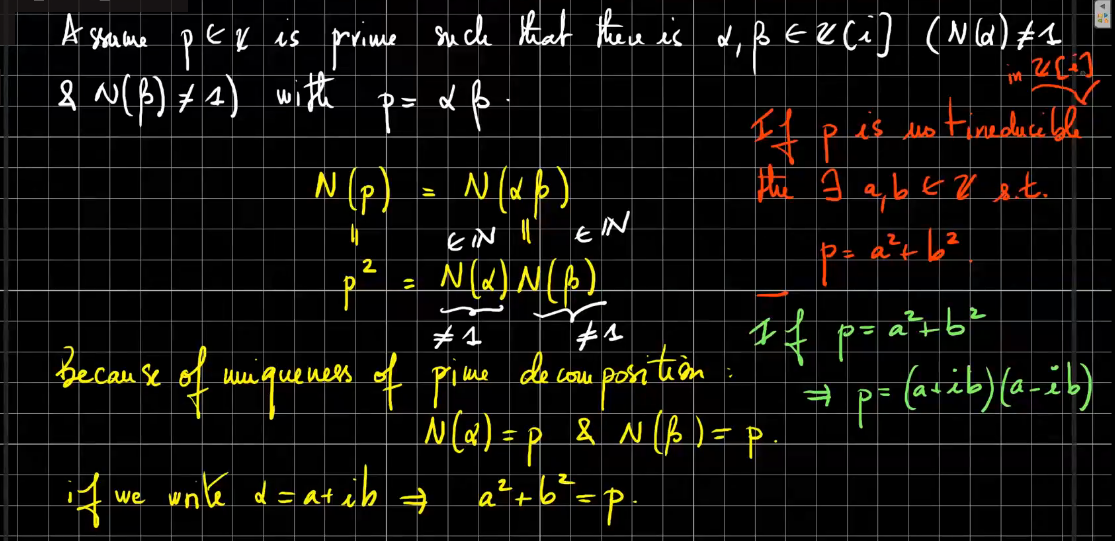 Assume p ∈ ℤ is prime such that there is α, β ∈ ℤ[i] (N(α) ≠ 1
& N(β) ≠ 1) with p = α β.
N(p) = N(α β)
|| ∈ ℕ || ∈ ℕ
p² = N(α) N(β)
≠ 1 ≠ 1
Because of uniqueness of prime decomposition :
N(α) = p & N(β) = p.
if we write α = a + ib ⇒ a² + b² = p.
in ℤ[i]
If p is not irreducible
the ∃ a, b ∈ ℤ s.t.
p = a² + b².
If p = a² + b²
⇒ p = (a + ib)(a - ib)